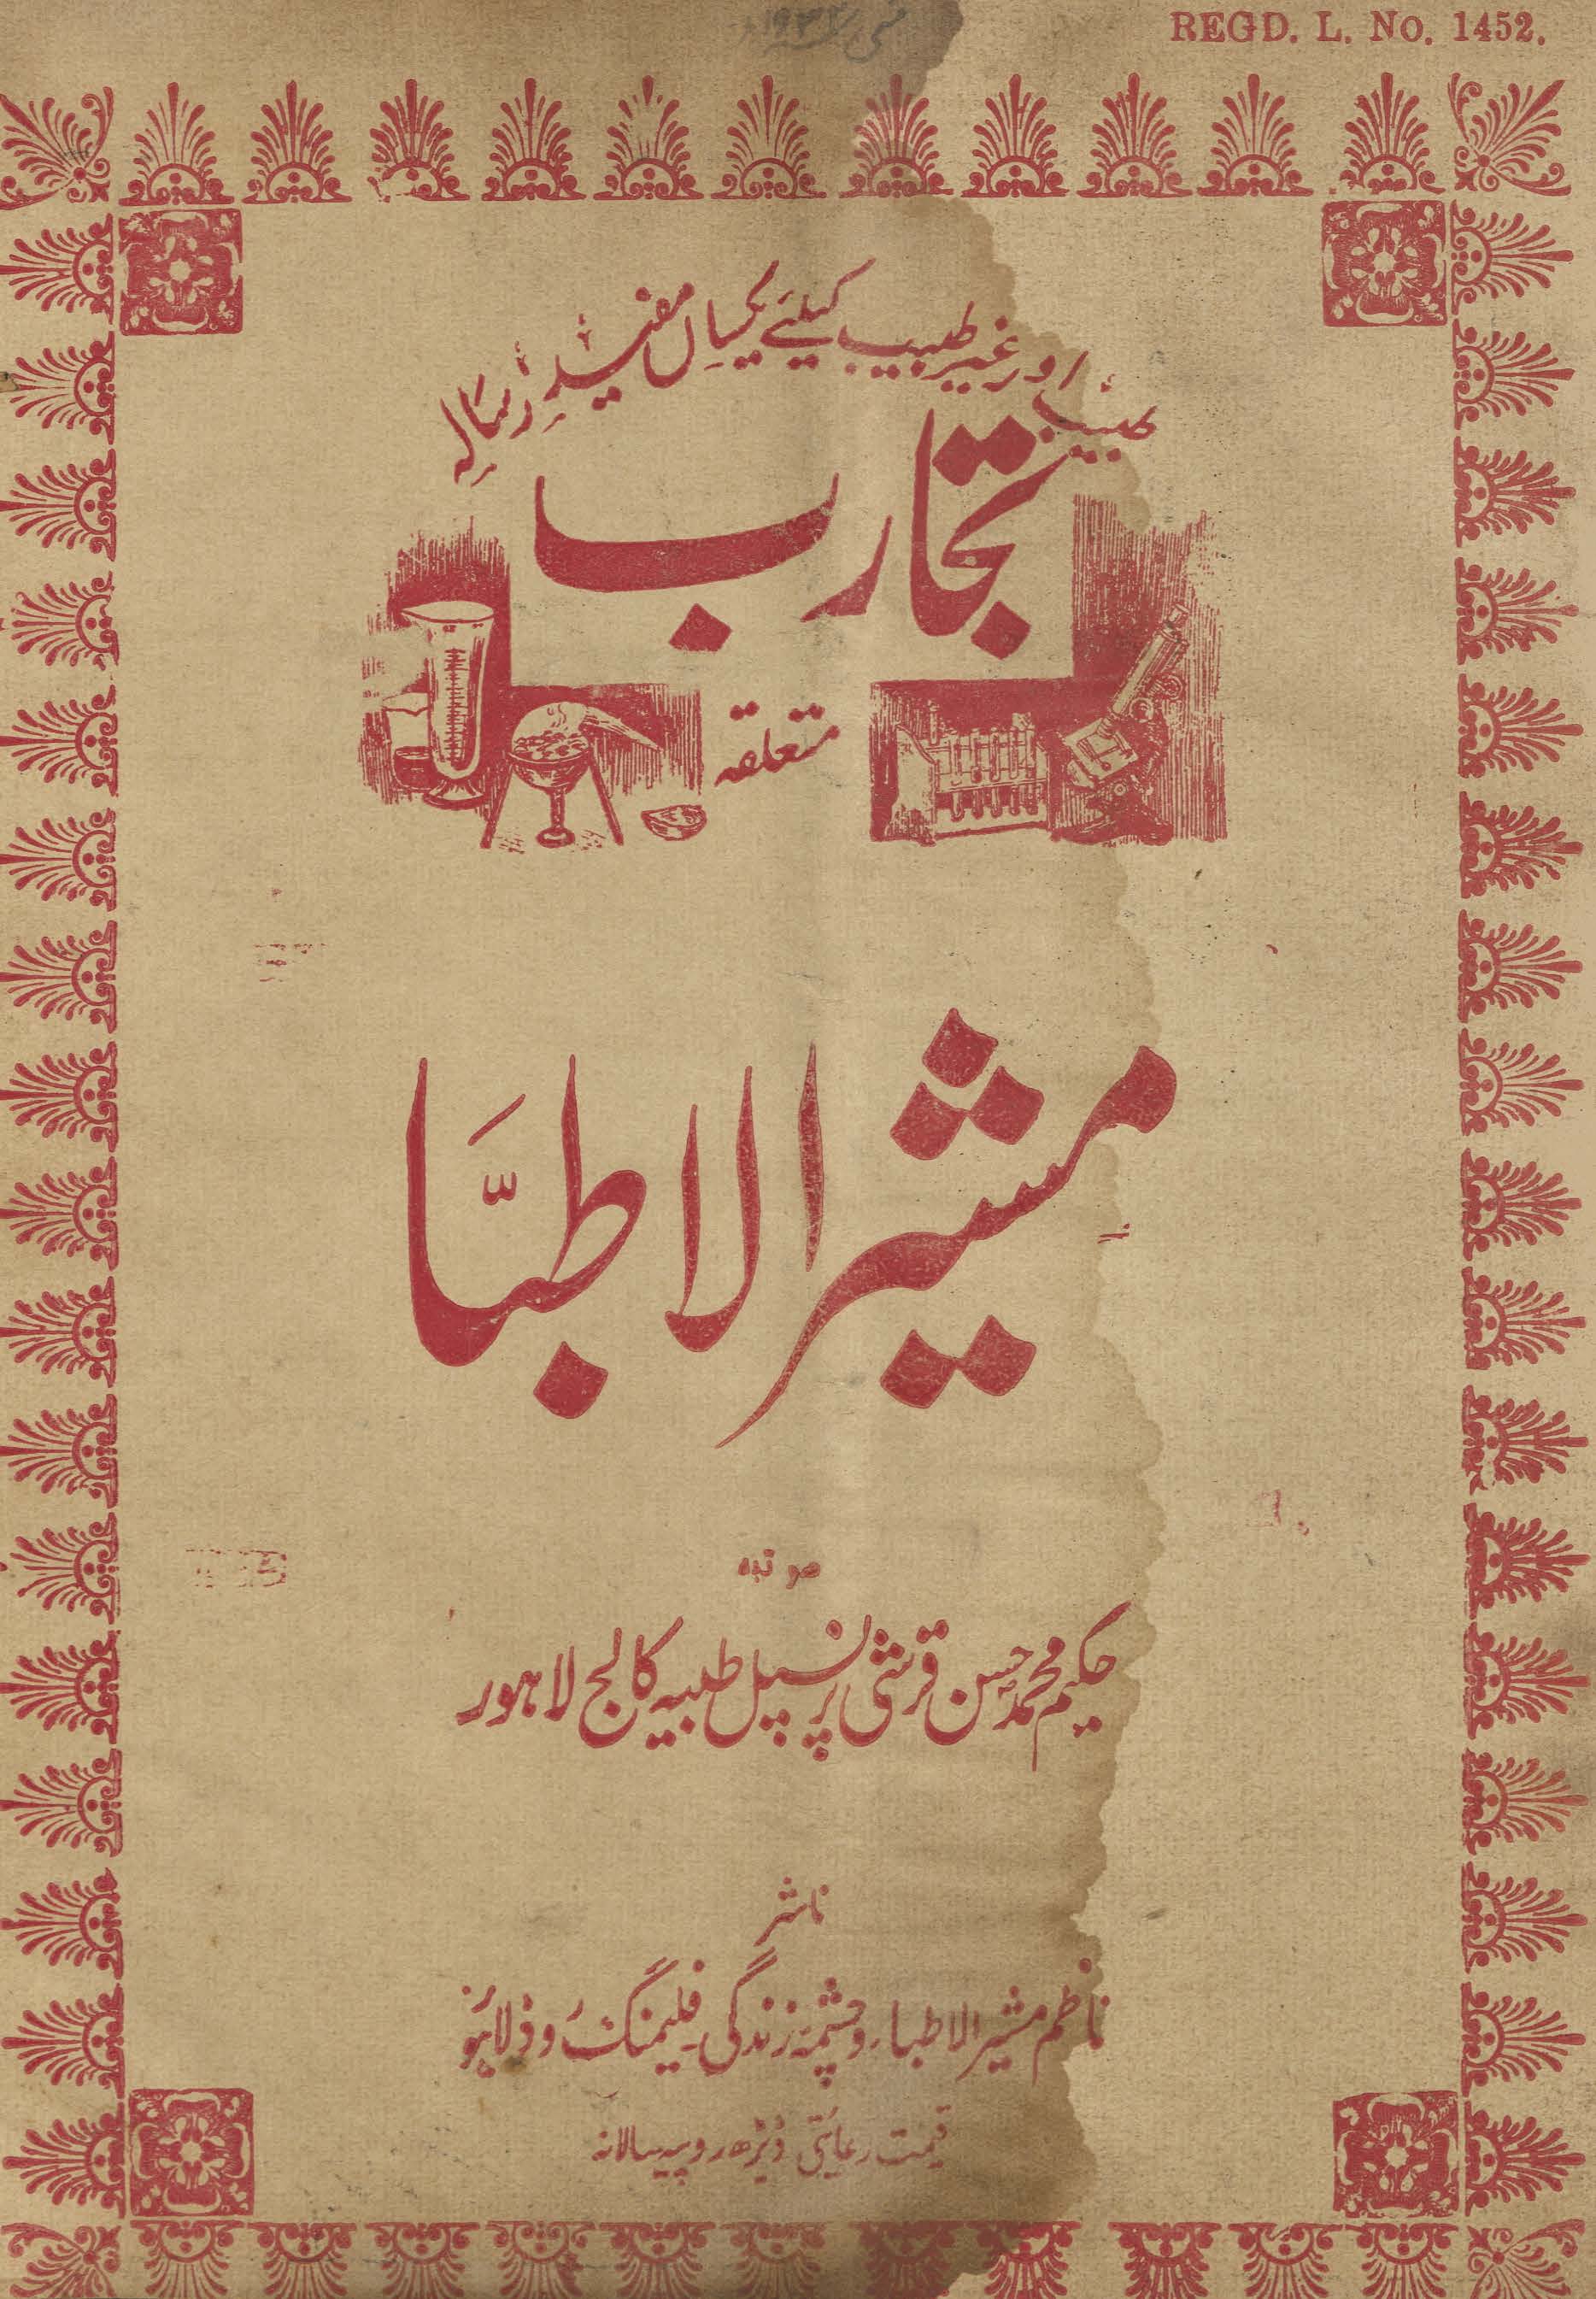 REGD. L. No. 1452.
مئی
طبیب اور غیر طبیب کیلئے یکساں مفید رسالہ
تجارب
متعلقہ
مشیر الاطبّا
حکیم محمد حسن قرشی پرنسپل طبیہ کالج لاہور
ناشر
ناظم مشیر الاطباء و چشمۂ زندگی۔ فلیمنگ روڈ لاہور
قیمت رعایتی ڈیڑھ روپیہ سالانہ